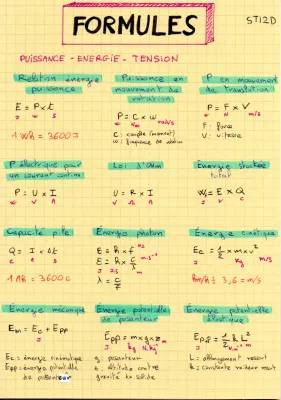 FORMULES
STI2D
PUISSANCE - ENERGIE - TENSION
Relation énergie
puissance
E = P x t
J W S
1 Wh = 3600 J
Puissance en
mouvement de
rotation
P = C x w
W Nm rad/s
C : couple (moment)
P en mouvement
de Translation
P = F x V
W N m/s
F : force
V : vitesse
P électrique pour
un courant continu
P = U x I
W V A
Loi d'Ohm
U = R x I
V Ω A
Energie stockée
E x Q
Capacité pile
Q = I x Δt
C A S
1 Ah = 3600 C
Energie photon
E = h x f
E = h x c/λ
λ = c/f
Energie cinétique
Ec = 1/2 x m x v²
J Kg m/s
Km/h ÷ 3,6 = m/s
Energie mécanique
Em = Ec + Epp
Ec = énergie cinétique
Epp = énergie potentielle
de pesanteur
Energie potentielle
de pesanteur
Epp = m x g x z
J kg N.kg⁻¹ m
g = pesanteur
z = altitude centre
gravité du solide
Energie potentielle
élastique
Epe = 1/2 k L²
L = allongement ressort
k = constante raideur ressort